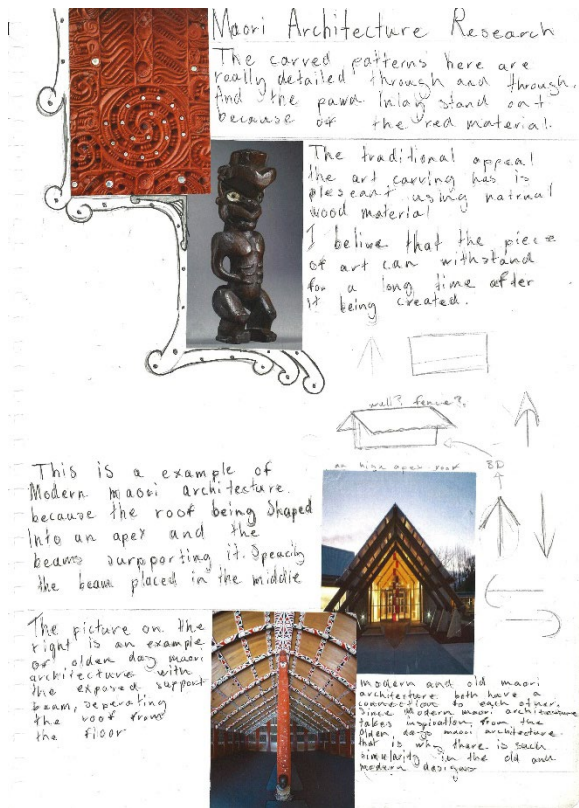 Maori Architecture Research
The carved patterns here are
really detailed through and through.
And the pawa inlay stand out
because of the red material.
The traditional appeal
the art carving has is
pleseant using natrual
wood material
I belive that the piece
of art can withstand
for a long time after
it being created.
wall? fence?
no high apex roof
3D
This is a example of
Modern maori architesture.
because the roof being Shaped
Into an apex and the
beams surpporting it. Speacily
the beam placed in the middle
The picture on the
right is an example
of olden day maori
architecture with
the exposed support
beam, seperating
the roof from
the floor
modern and old maori
architecture both have a
connection to each other.
Since modern maori architecture
takes inspiration from the
olden days maori architecture.
that is why there is such
simularity in the old and
modern dasigns